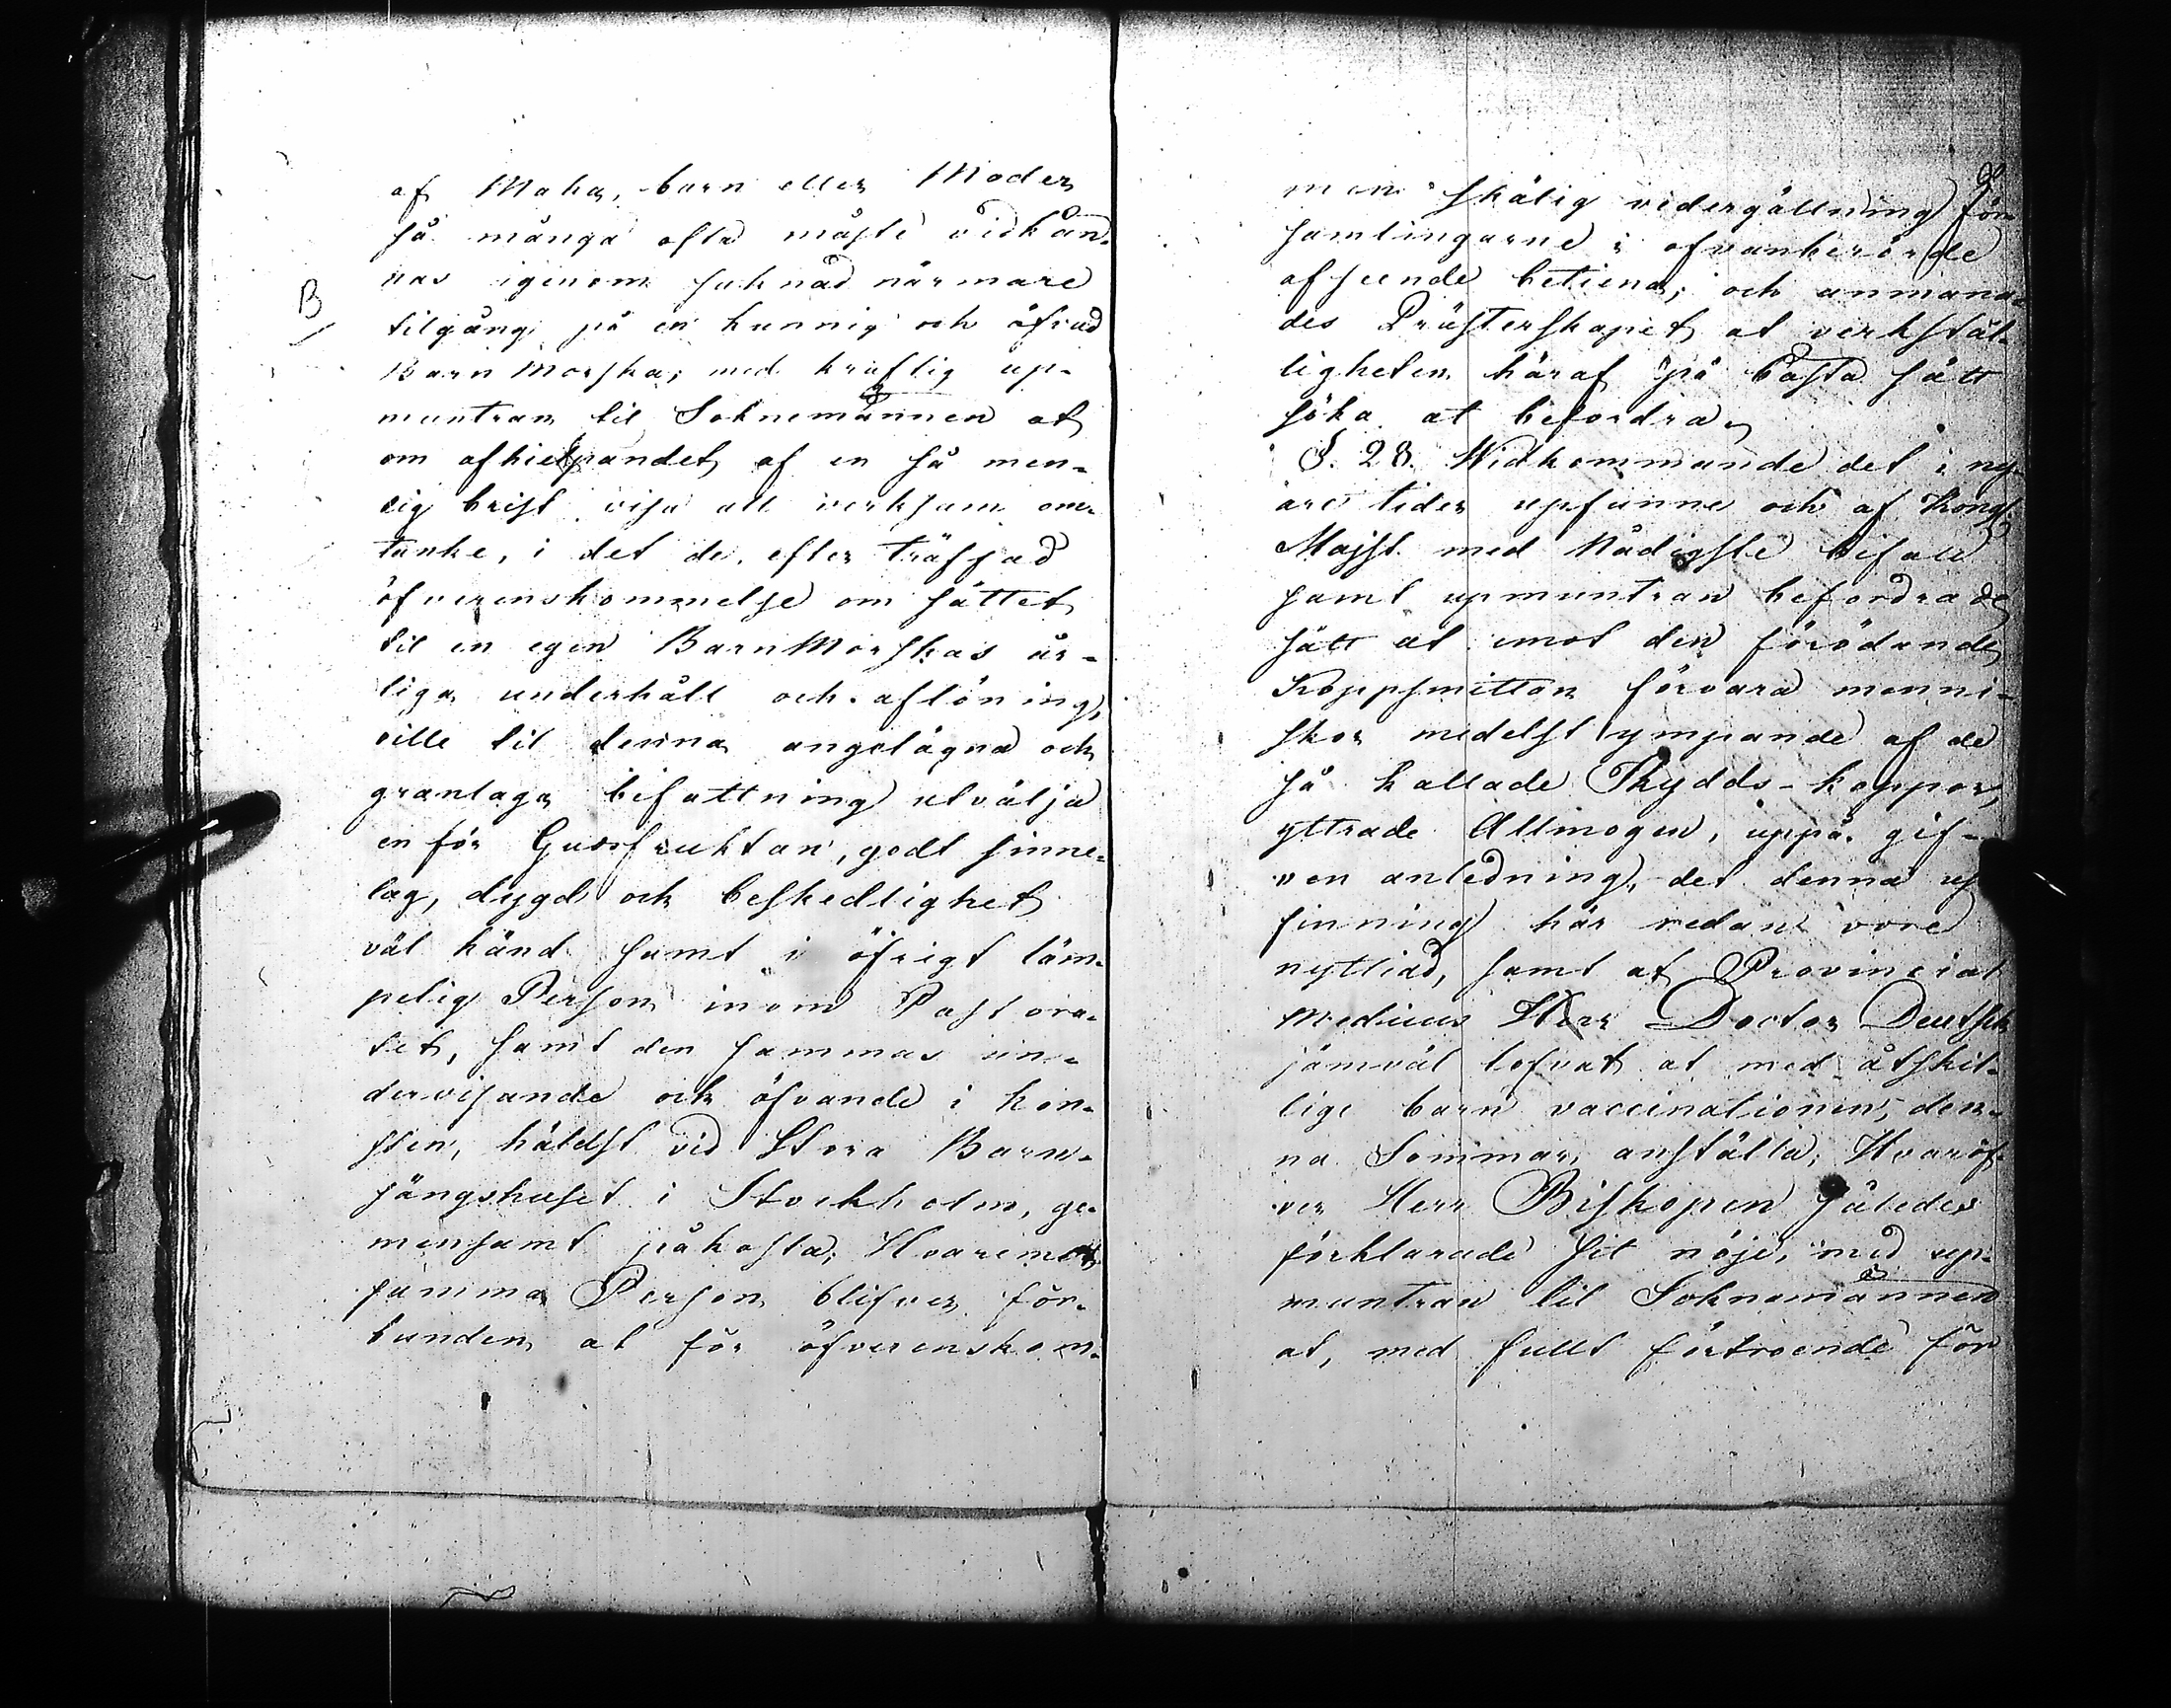 af Maka, barn eller Moder
så många ofta måste vidkän-
nas igenom saknad närmare
B
tilgång på en kunnig och öfvad
BarnMorska; med kraftig up-
muntran til Soknemännen at
om afhielpandet af en så men-
lig brist visa all verksam om-
tanke, i det de, efter träffad
öfverenskommelse om sättet
til en egen BarnMorskas år-
liga underhåll och aflöning,
ville til denna angelägna och
granlaga befattning utvälja
en för Gudsfruktan, godt sinne-
lag, dygd och beskedlighet
väl känd samt i öfrigt läm-
pelig Person inom Pastora-
tet, samt den sammas un-
dervisande och öfvande i kon-
sten, häldst vid Stora Barn-
sängshuset i Stockholm, ge-
mensamt påkosta; Hvaremot
samma Person blifver för-
bunden at för öfverenskom-
men skälig vedergällning För-
samlingarne i ofvanberörde
afseende betiena; och anmana-
des Prästerskapet at verkstäl-
ligheten häraf på bästa sätt
söka at befordra.
§. 28. Widkommande det i ny-
are tider upfunne och af Kongl
Majst. med Nådigste Bifall
samt upmuntran befordrade
sätt at emot den förödande
Koppsmittan förvara menni-
skor medelst ympande af de
så kallade Skydds-koppor,
yttrade Allmogen, uppå gif-
ven anledning, det denna up
finning här redan vore
nyttiad, samt at Provincial
Medicus Herr Doctor Deutsch
jämväl lofvat at med åtskil-
lige barn vaccinationen, den-
na Sommar, anställa; Hvaröf-
ver Herr Biskopen således
förklarade sit nöje, med up-
muntran til Soknemännen
at, med fullt förtroende för